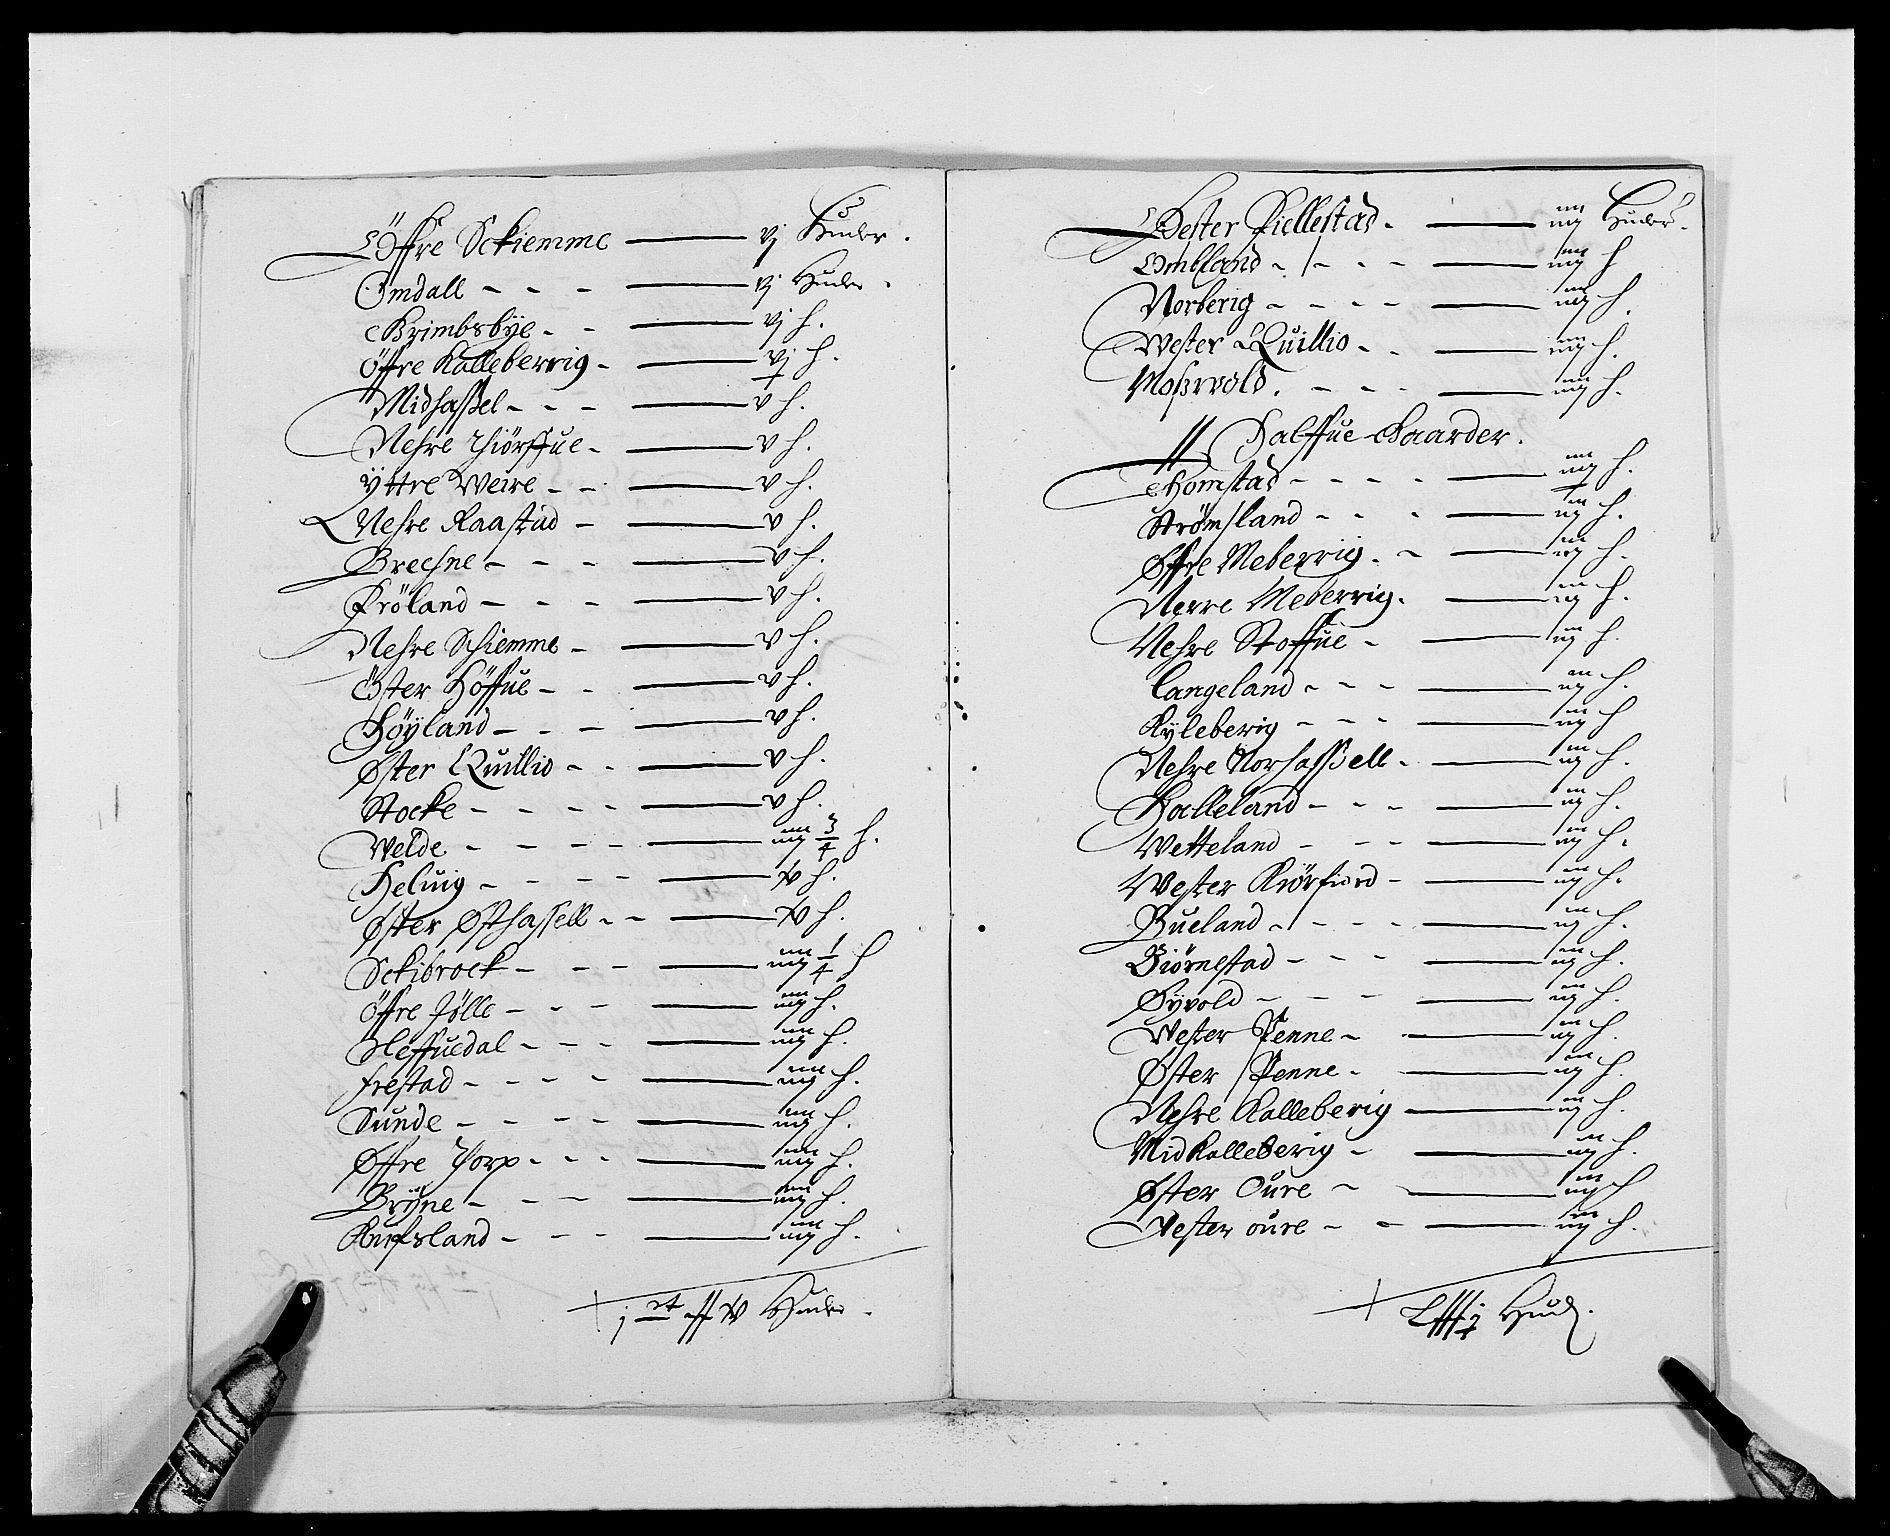 Öffre Sckiemme — vj Huder.
Omdall - - - — vj Huder.
Grimbsbÿe - - — vj h.
Öffre Kalleberrig - — vj h.
Midhassel - - - — v h.
Nehre Thiörffue - — v h.
Ÿttre Weire - - — v h.
Nehre Raastad - — v h.
Brechne - - - — v h.
Fröland - - - — v h.
Nehre Schiemme - — v h.
Öster Höffue - - — v h.
Höÿland - - - — v h.
Øster Quillio - - — v h.
Stocke - - - - — v h.
Welde - - - - — iiij 3/4 h.
Heluig - - - - — h.
Øster Østhassell - - — h.
Sckibrock - - - — iiij 1/4 h
Öffre Jølle - - - — iiij h.
Neffuedal - - - — iiij h.
Frestad - - - - — iiij h.
Sunde - - - - — iiij h.
Øffre Torp - - - — iiij h.
Brÿne - - - — iiij h.
Knifsland - - - — iiij h.
Huder.
Vester Fiellestad. — iiij Huder.
Ombland - - - - — iiij h
Norberig - - - - — iiij h.
Wester Quillio - - — iiij h.
Mosvold. - - - — iiij h.
Halffue Gaarder.
Homstad - - - - — iiij h.
Strømsland - - - — iij h.
Øffre Meberrig. - — iij h.
Nerre Meberrig. — iij h.
Nehre Stoffue - — iij h
Langeland - - - — iij h.
Kÿleberig - - - — iij h
Nehre Norhassell - — iij h.
Halleland - - - — iij h.
Wetteland - - - — iij h.
Wester Kiørfiord - — iij h.
Bueland - - - - — iij h.
Biörnestad - - - — iij h.
Øÿvold - - - — iij h.
Vester Penne - — iij h.
Øster Penne - — iij h.
Nehre Kalleberig — iij h.
Mid Kalleberig - — iij h.
Øster Oure - — iij h
Vester oure - - — iij h.
Hud